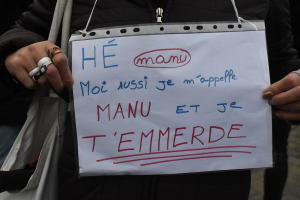 HÉ manu
Moi aussi je m'appelle
MANU ET je
T'EMMERDE